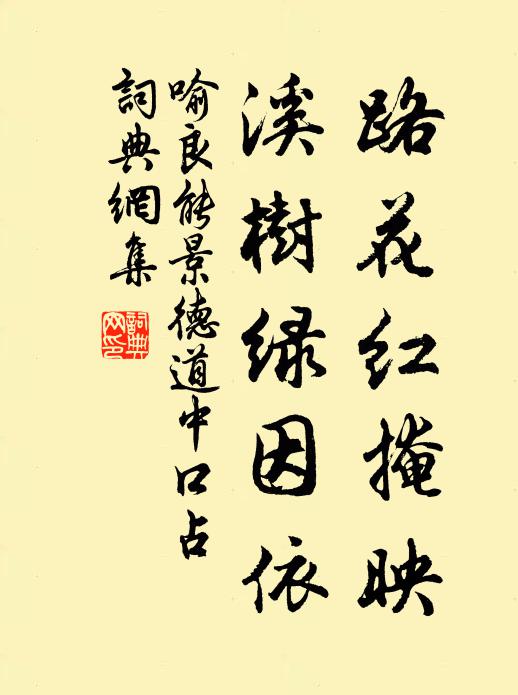 路花红掩映
溪樹緑因依
喻良能景德道中口占
詞典網集
詞典
网印